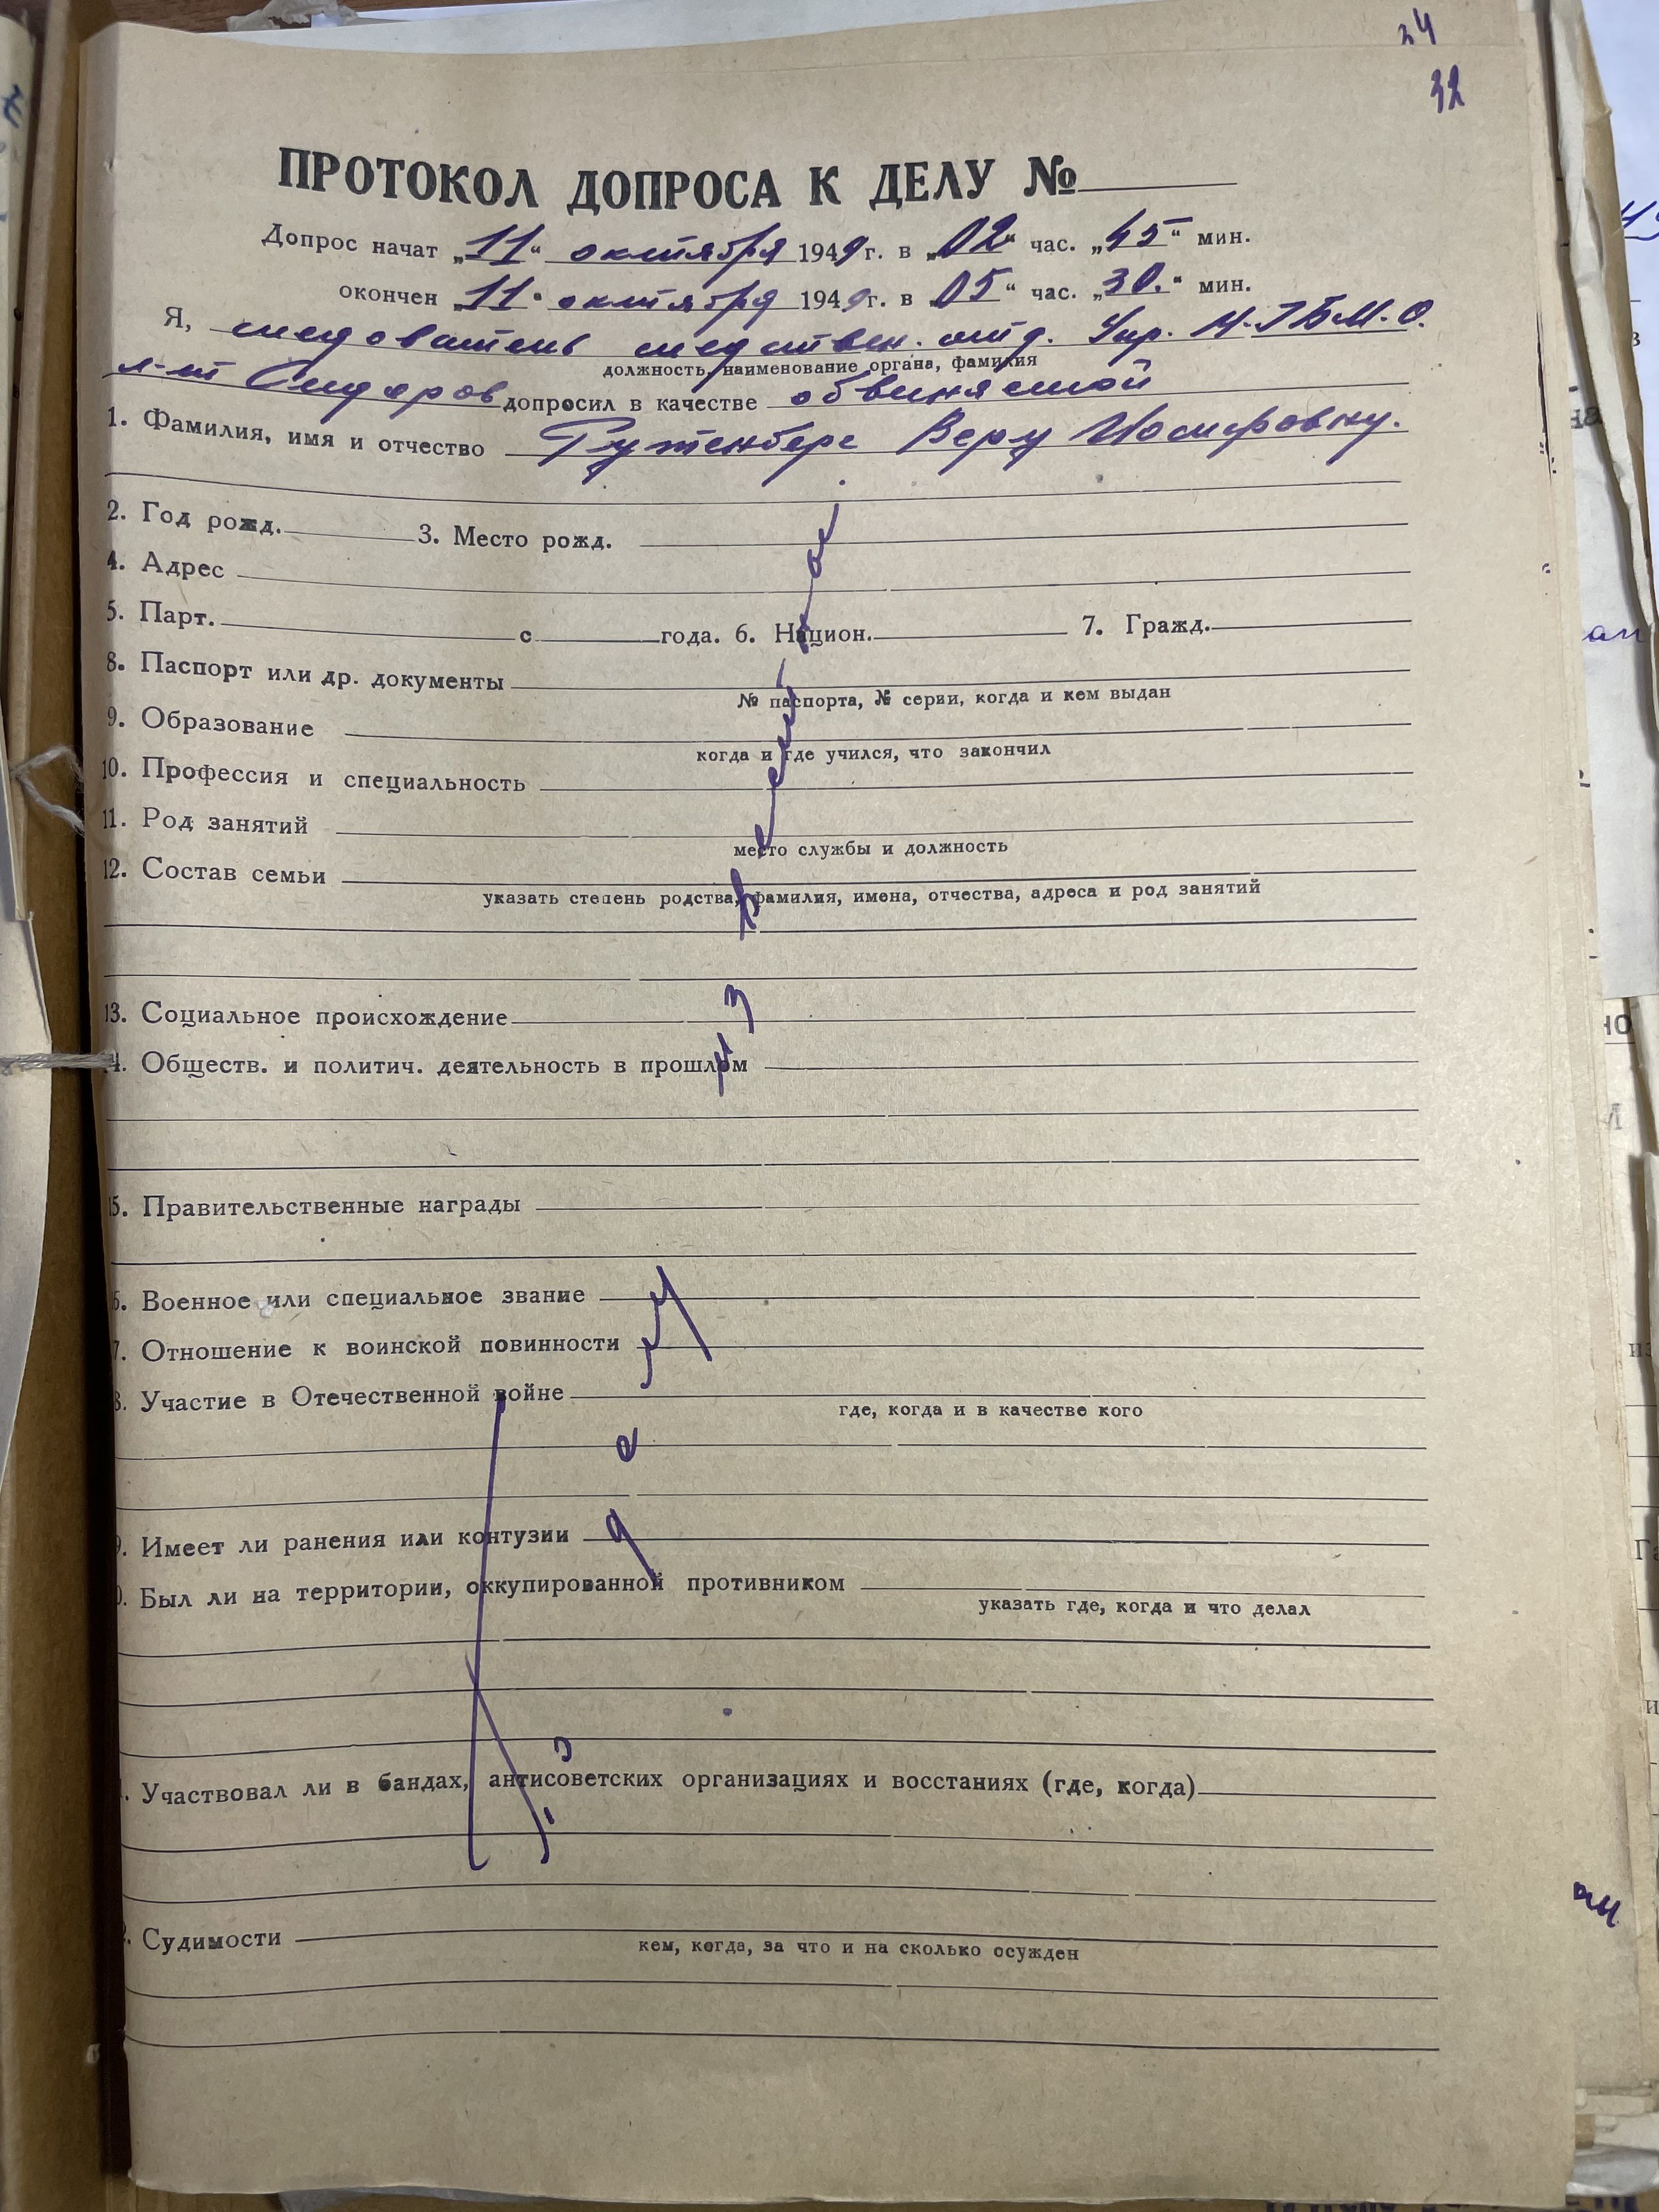 34
32
ПРОТОКОЛ ДОПРОСА К ДЕЛУ №
Допрос начат „11“ октября 1949 г. в „02“ час. „45“ мин.
окончен „11“ октября 1949 г. в „05“ час. „30.“ мин.
Я, следователь следствен. отд. Упр. М.ГБ М.О.
должность, наименование органа, фамилия
л-т Сидоров допросил в качестве обвиняемой
1. Фамилия, имя и отчество Рутенберг Веру Иосифовну.
2. Год рожд. 3. Место рожд.
4. Адрес
5. Парт. с года. 6. Национ. 7. Гражд.
8. Паспорт или др. документы
№ паспорта, № серии, когда и кем выдан
9. Образование
когда и где учился, что закончил
10. Профессия и специальность
11. Род занятий
место службы и должность
12. Состав семьи
указать степень родства, фамилия, имена, отчества, адреса и род занятий
13. Социальное происхождение
4. Обществ. и политич. деятельность в прошлом
5. Правительственные награды
6. Военное или специальное звание
7. Отношение к воинской повинности
8. Участие в Отечественной войне
где, когда и в качестве кого
9. Имеет ли ранения или контузии
0. Был ли на территории, оккупированной противником
указать где, когда и что делал
. Участвовал ли в бандах, антисоветских организациях и восстаниях (где, когда)
. Судимости
кем, когда, за что и на сколько осужден